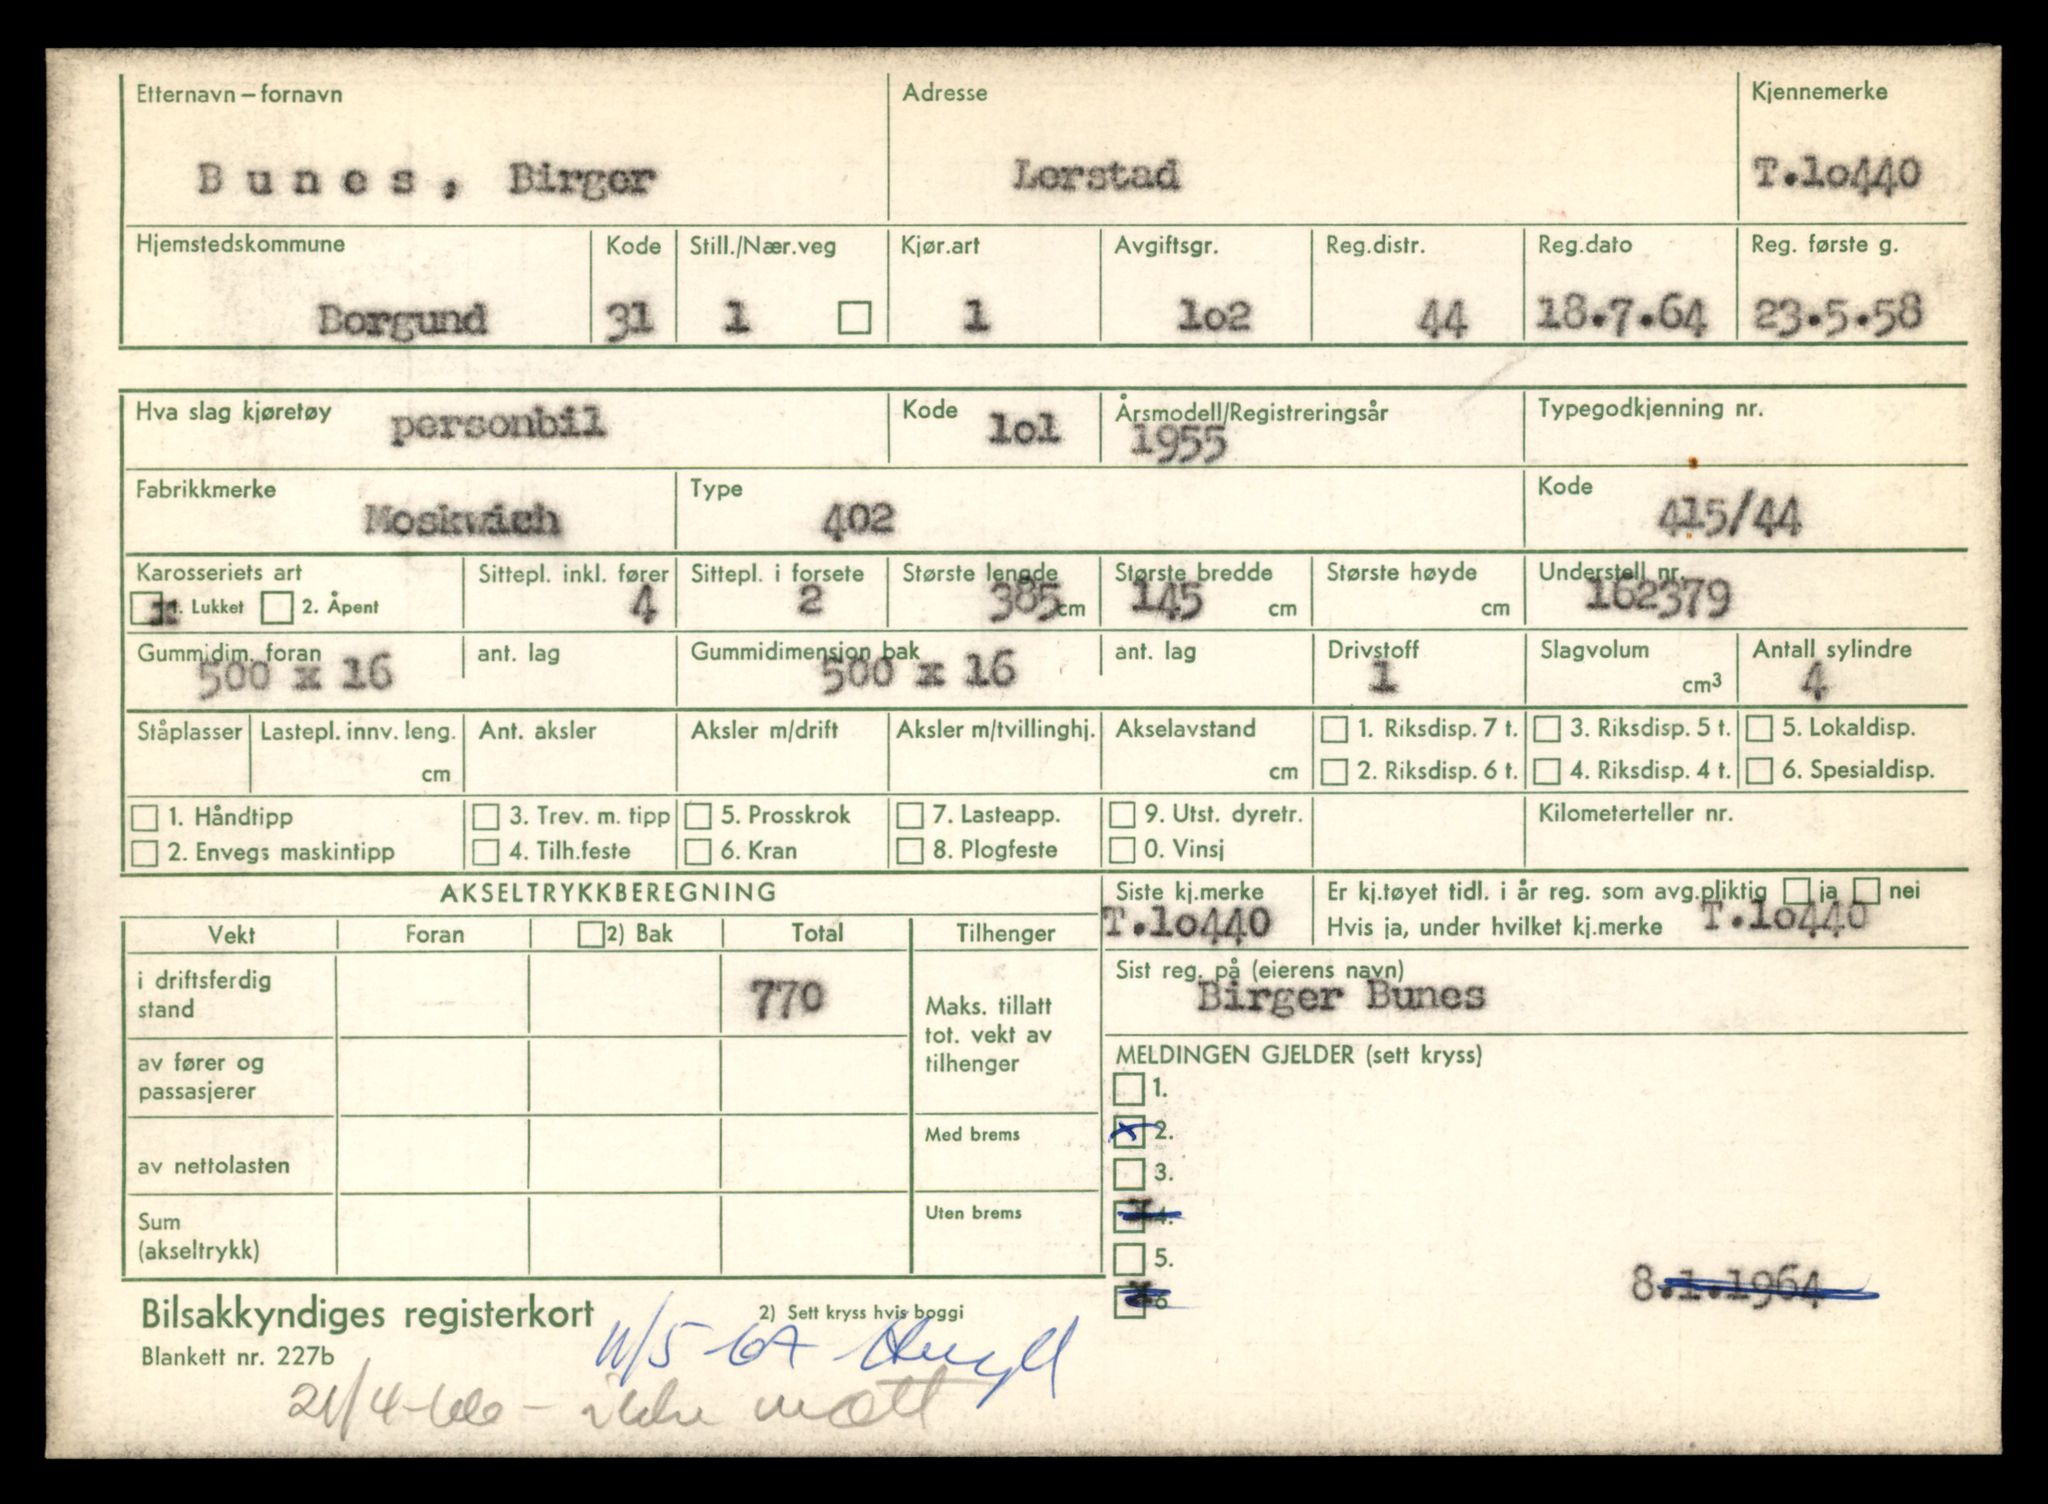 Etternavn – fornavn Adresse Kjennemerke
Bunes, Birger Lerstad T.lo440
Hjemstedskommune Kode Still./Nær.veg Kjør.art Avgiftsgr. Reg.distr. Reg.dato Reg. første g.
Borgund 31 1 1 lo2 44 18.7.64 23.5.58
Hva slag kjøretøy personbil Kode lol Årsmodell/Registreringsår 1955 Typegodkjenning nr.
Fabrikkmerke Moskwich Type 402 Kode 415/44
Karosseriets art Sittepl. inkl. fører Sittepl. i forsete Største lengde Største bredde Største høyde Understell nr.
x 1. Lukket 2. Åpent 4 2 385 cm 145 cm cm 162379
Gummidim. foran ant. lag Gummidimensjon bak ant. lag Drivstoff Slagvolum Antall sylindre
500 x 16 500 x 16 1 cm3 4
Ståplasser Lastepl. innv. leng. Ant. aksler Aksler m/drift Aksler m/tvillinghj. Akselavstand 1. Riksdisp. 7 t. 3. Riksdisp. 5 t. 5. Lokaldisp.
cm cm 2. Riksdisp. 6 t. 4. Riksdisp. 4 t. 6. Spesialdisp.
1. Håndtipp 3. Trev. m. tipp 5. Prosskrok 7. Lasteapp. 9. Utst. dyretr. Kilometerteller nr.
2. Envegs maskintipp 4. Tilh.feste 6. Kran 8. Plogfeste 0. Vinsj
AKSELTRYKKBEREGNING
Vekt Foran 2) Bak Total Tilhenger
i driftsferdig stand 770
av fører og passasjerer
av nettolasten
Sum (akseltrykk)
Maks. tillatt tot. vekt av tilhenger
Med brems
Uten brems
Siste kj.merke Er kj.tøyet tidl. i år reg. som avg.pliktig ja nei
T.lo440 Hvis ja, under hvilket kj.merke T.lo440
Sist reg. på (eierens navn)
Birger Bunes
MELDINGEN GJELDER (sett kryss)
1.
x 2.
3.
x 4.
5.
x 6
8.1.1964
Bilsakkyndiges registerkort 2) Sett kryss hvis boggi
Blankett nr. 227b
21/4-66 - ikke møtt